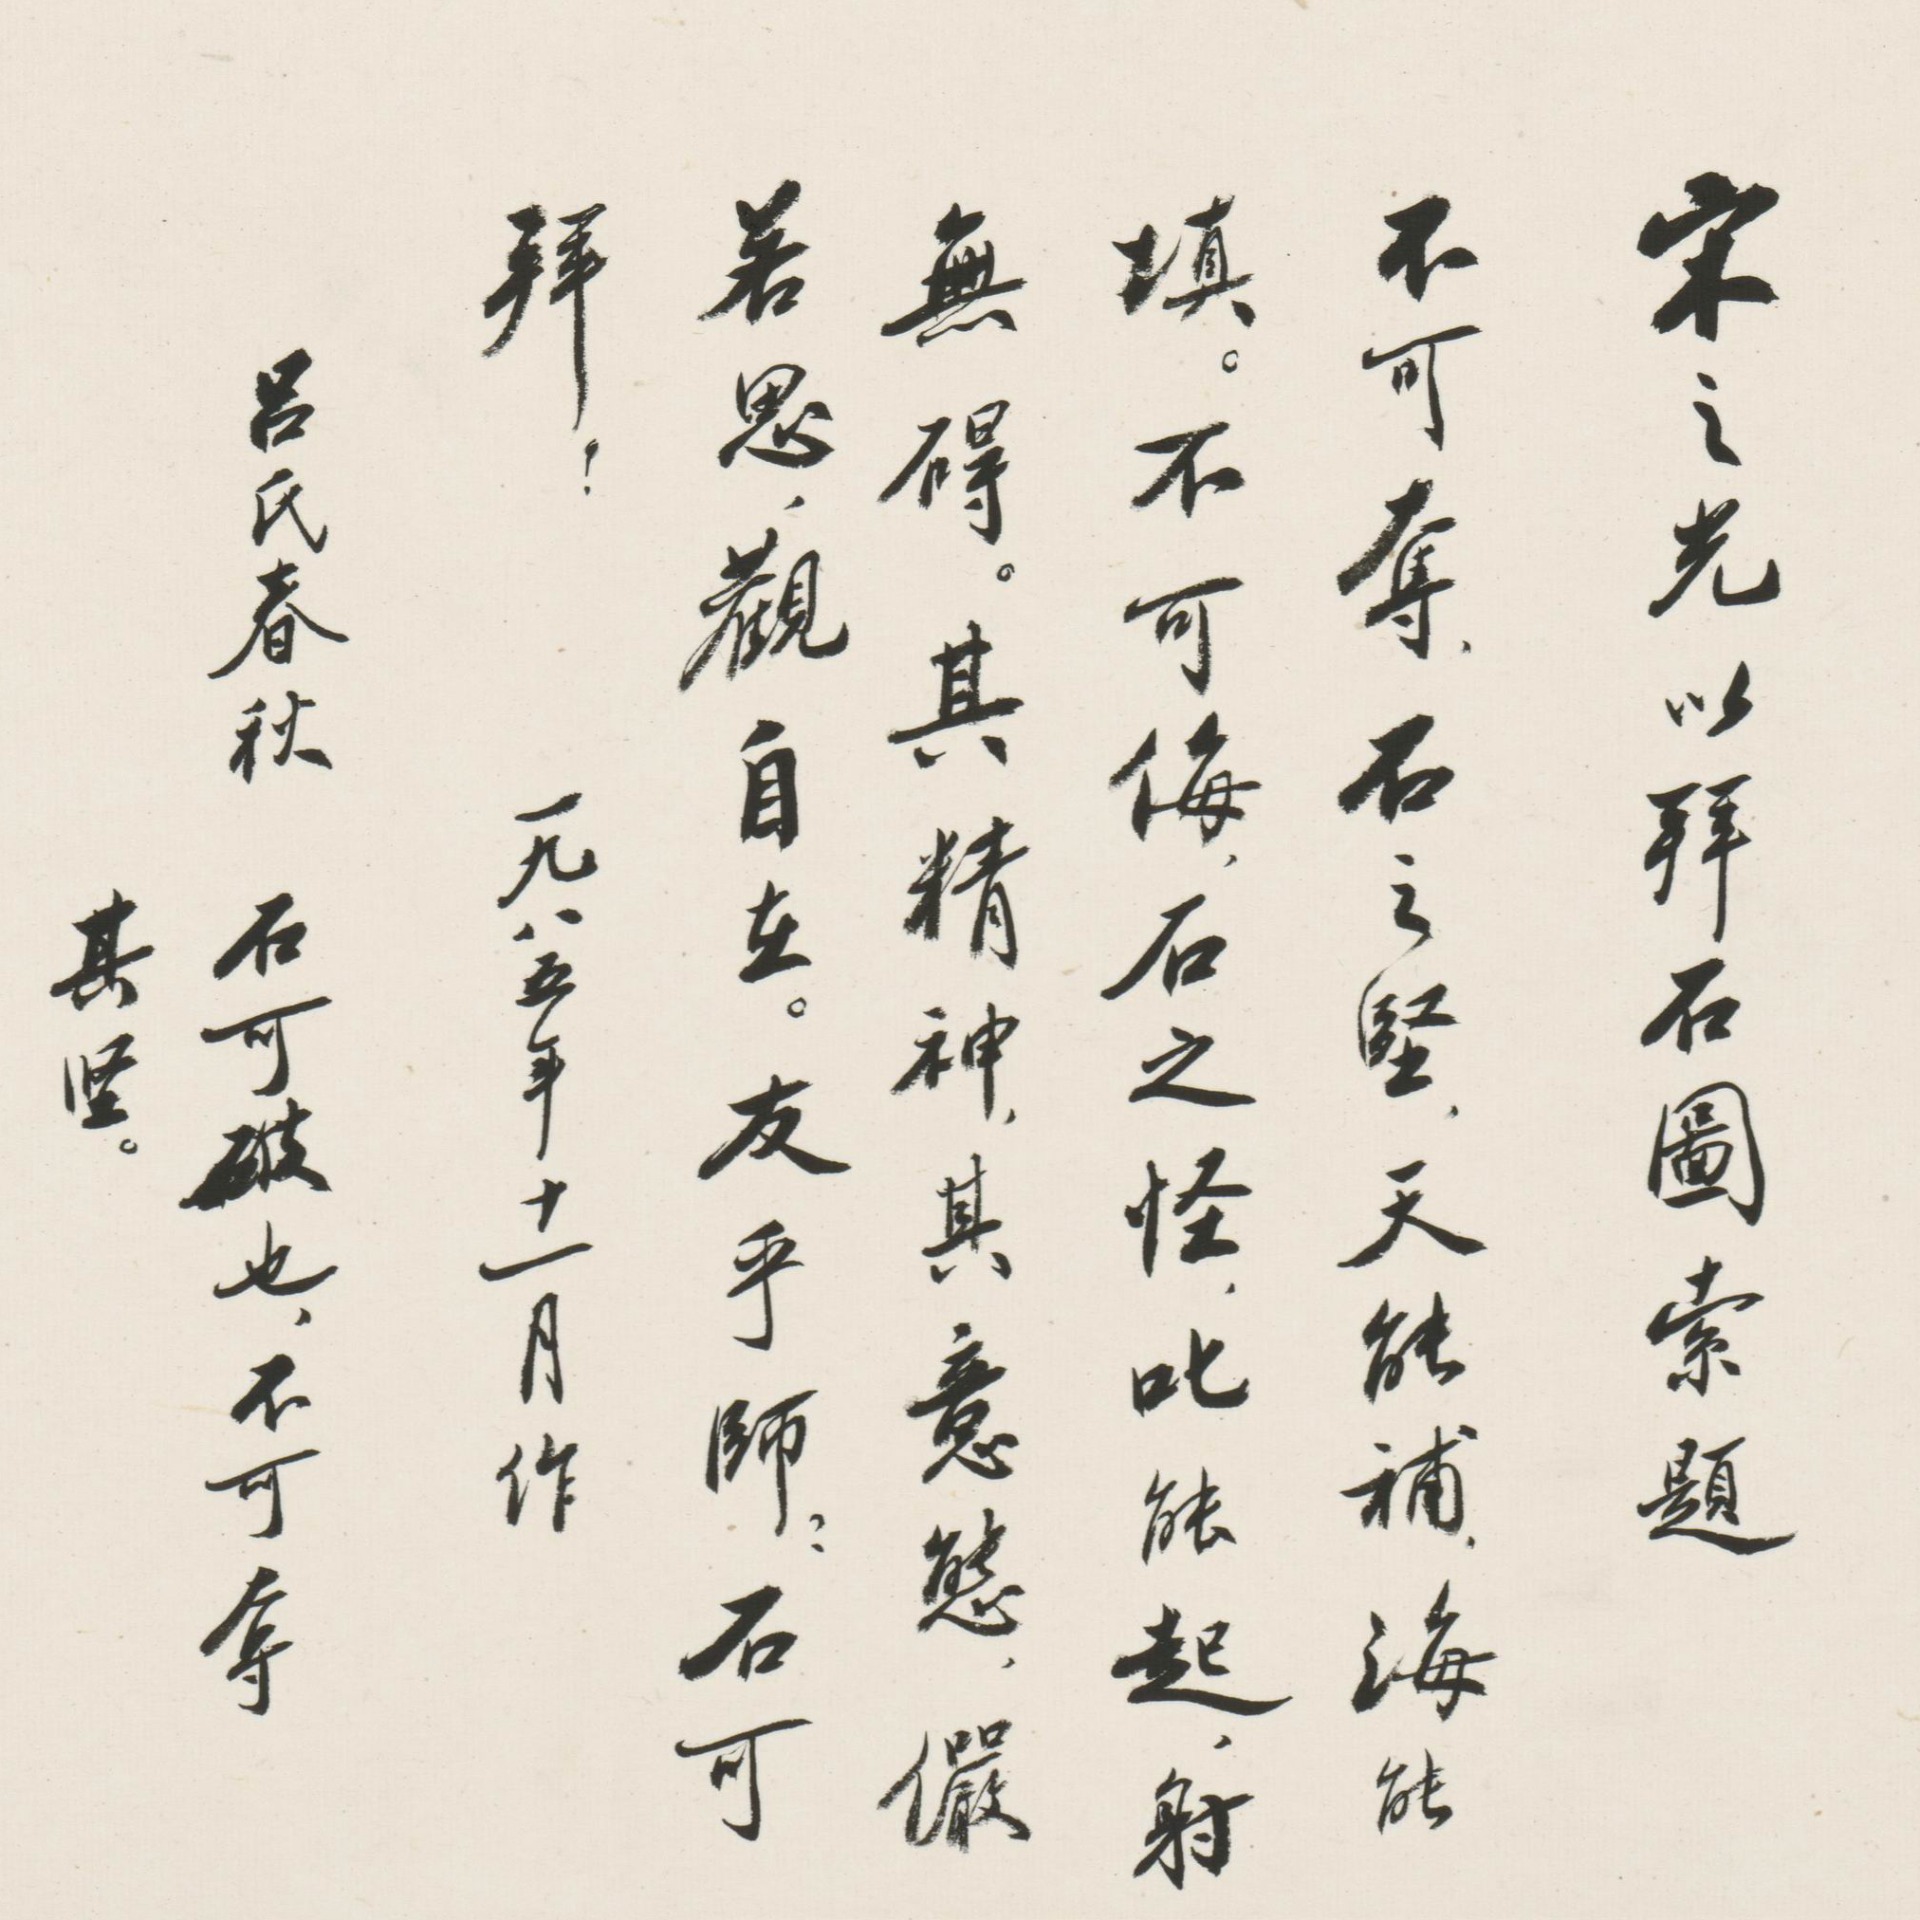 宋之光以拜石圖索題
不可奪，石之堅，天能補，海能
填。不可侮，石之怪，叱能起，射
無碍。其精神，其意態，儼
若思，觀自在。友乎師？石可
拜！ 一九八五年十一月作
吕氏春秋 石可破也，不可夺
其坚。